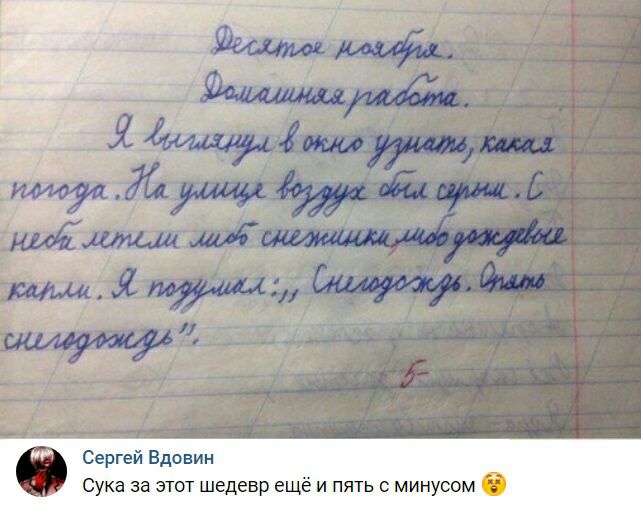 Десятое ноября.
Домашняя работа.
Я выглянул в окно узнать, какая
погода. На улице воздух был серым. С
неба летели либо снежинки, либо дождевые
капли. Я подумал: ,, Снегодождь. Опять
снегодождь”.
5-
Сергей Вдовин
Сука за этот шедевр ещё и пять с минусом 😵